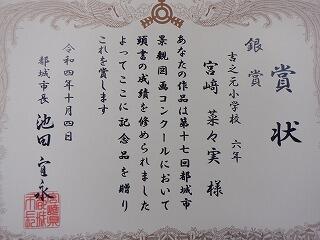 賞状
銀賞
吉之元小学校 六年
宮﨑 菜々実 様
あなたの作品は第十七回都城市
景観図画コンクールにおいて
頭書の成績を修められました
よってここに記念品を贈り
これを賞します
令和四年十月四日
都城市長 池田宜永